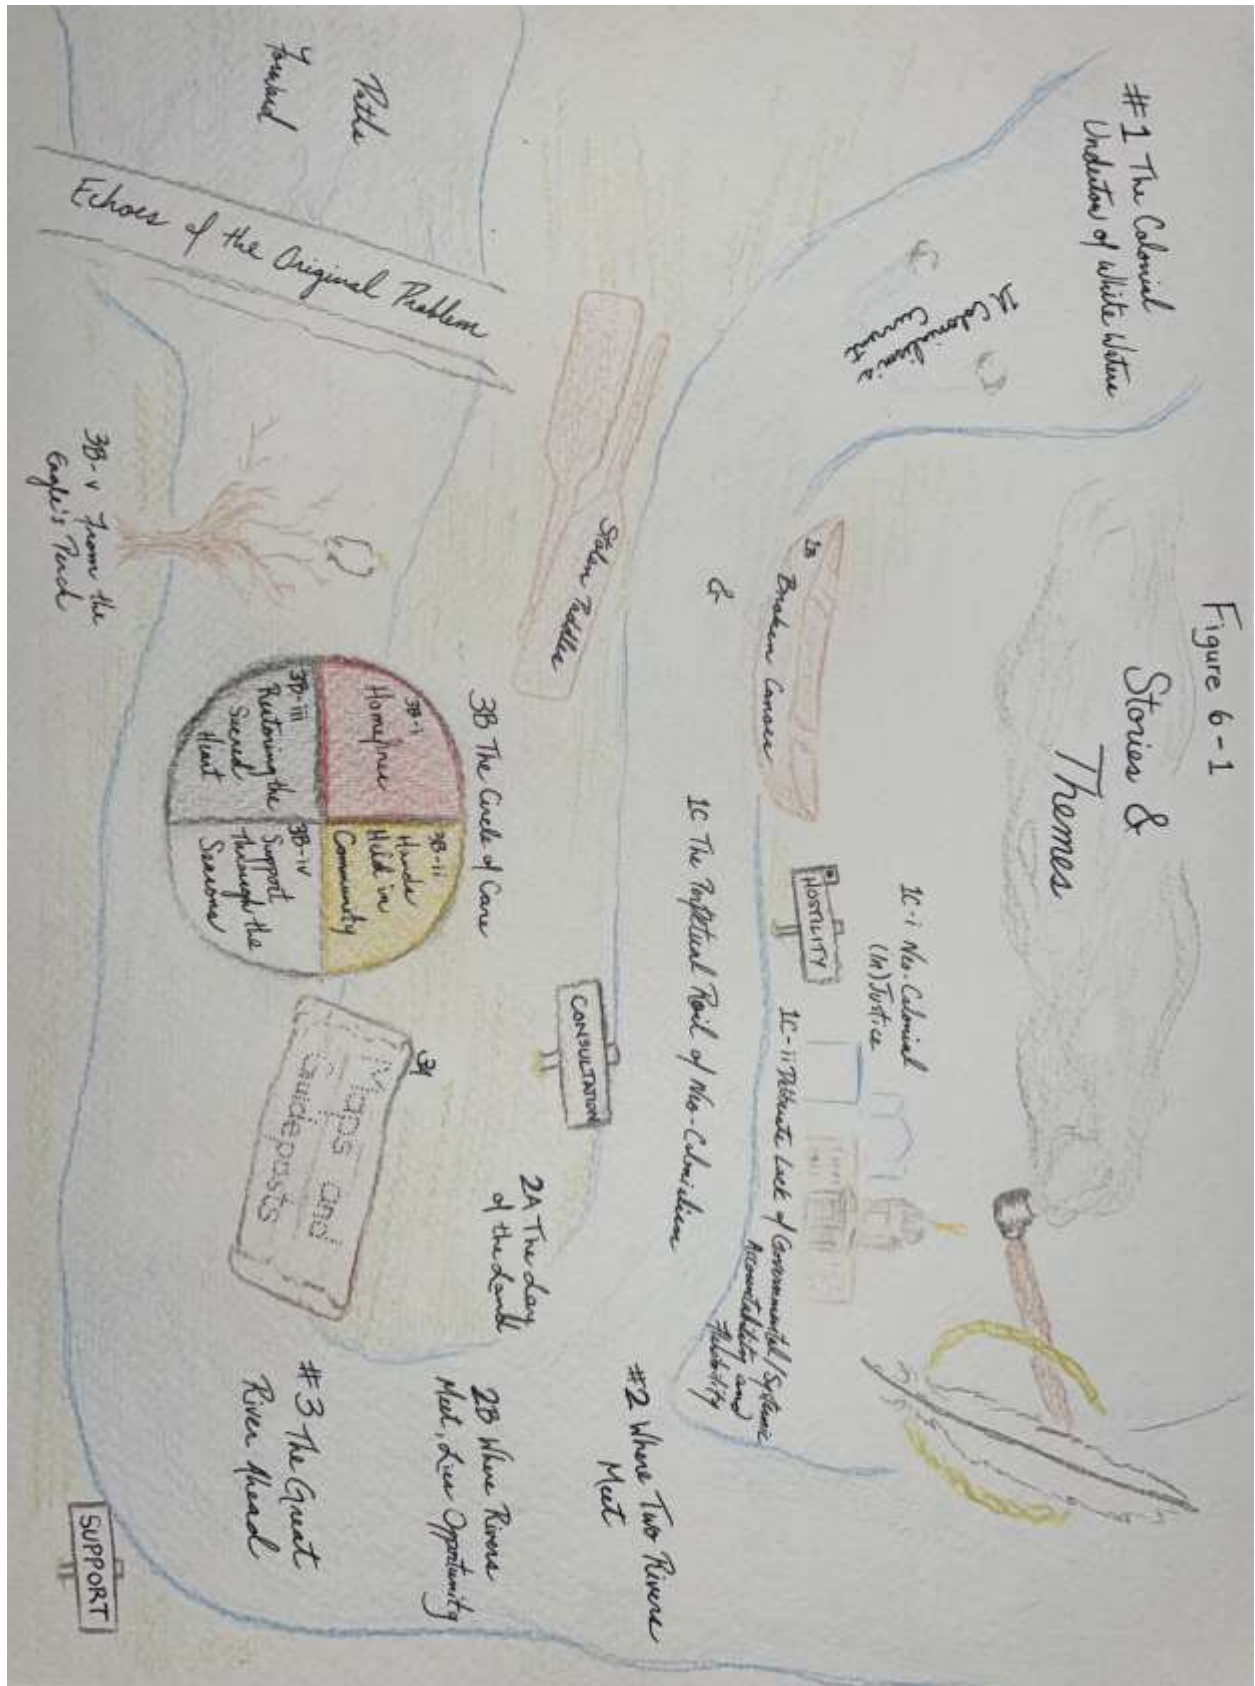 Figure 6-1
Stories &
Themes
#1 The Colonial
Undertow of White Waters
1A Colonialism's
Current
1B
Broken Canoes
&
Stolen Paddles
HOSTILITY
1C-i Neo-Colonial
(In)Justice
1C-ii Deliberate Lack of Governmental/Systemic
Accountability and
1C The Perpetual of Neo-Colonialism
#2 Where Two Rivers
Meet
CONSULTATION
2A The Law
of the Land
2B Where Rivers
Meet, Lies Opportunity
#3 The Great
River Ahead
SUPPORT
3A
Maps and
Guideposts
3B The Circle of Care
3B-i
Homefires
3B-ii
Hands
Held in
Community
3B-iii
Restoring the
Sacred
Heart
3B-iv
Support
Through the
Seasons
3B-v From the
Eagle's Perch
Echoes of the Original Problem
Paths
Forward